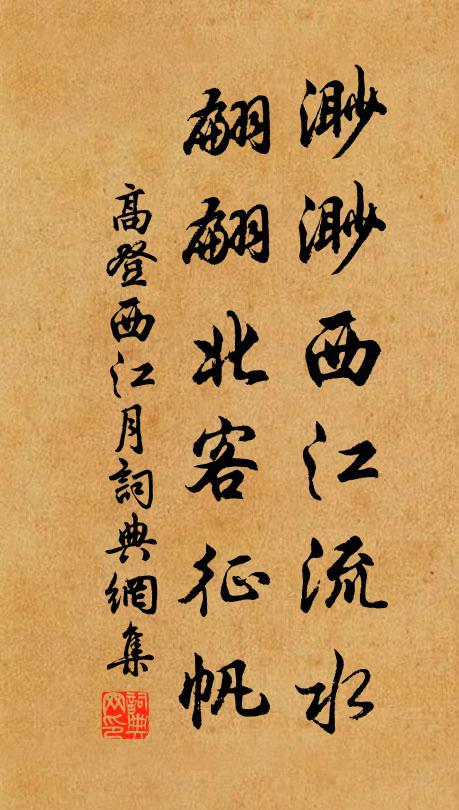 渺渺西江流水
翩翩北客征帆
高登西江月詞典網集
詞典网印